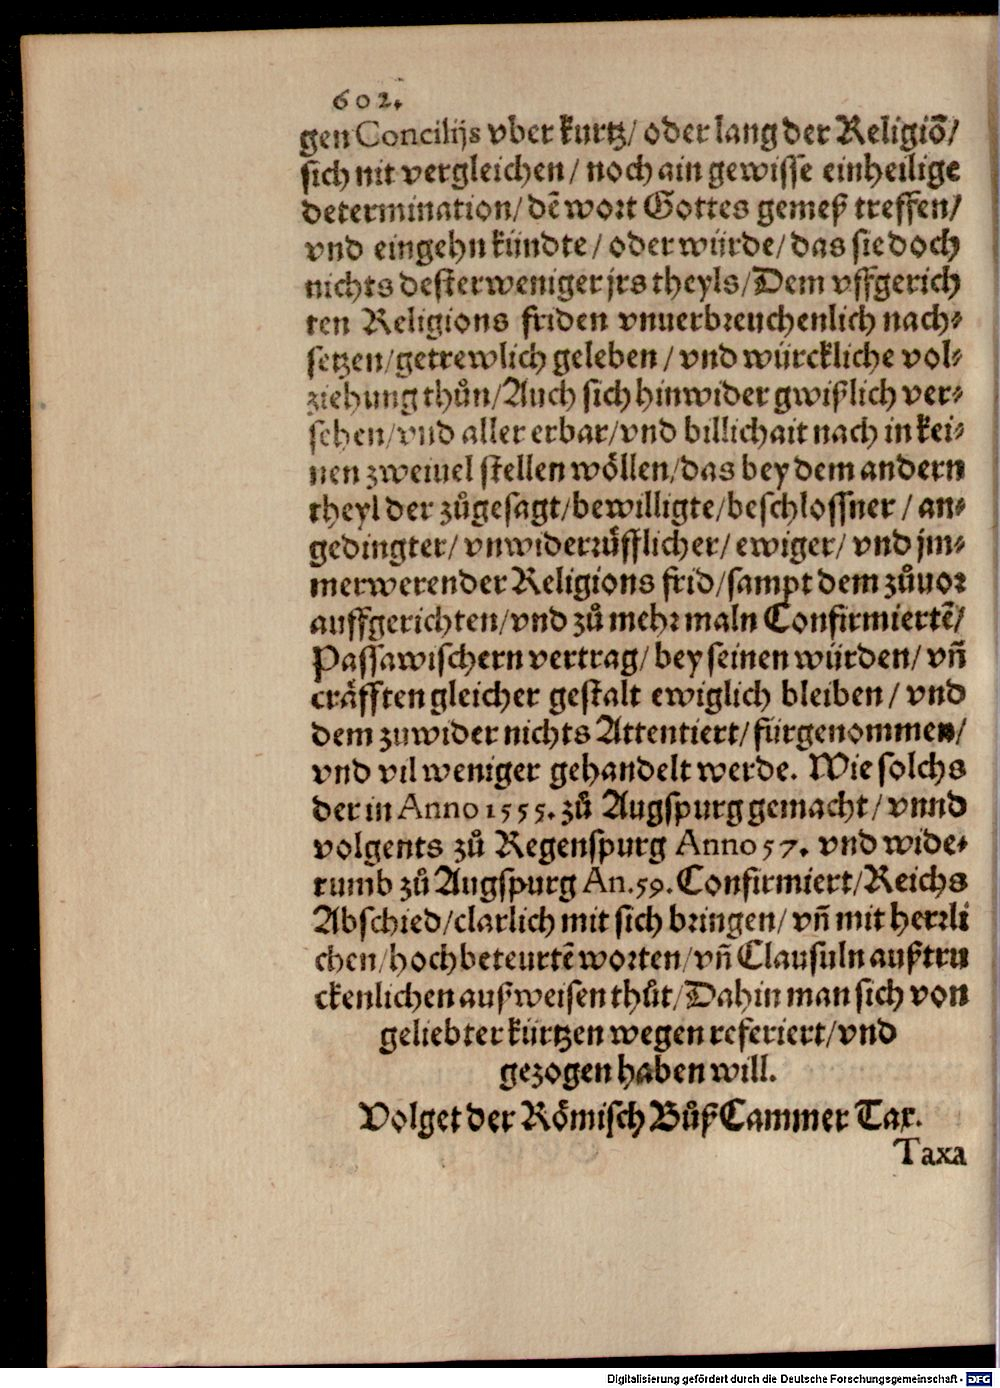 602.
gen Concilijs vber kurtz/ oder lang der Religiō/
sich nit vergleichen/ noch ain gewisse einheilige
determination/ dē wort Gottes gemeß treffen/
vnd eingehn kündte/ oder würde/ das sie doch
nichts desterweniger jrs theyls/ Dem vffgerich
ten Religions friden vnuerbreuchenlich nach⸗
setzen/ getrewlich geleben/ vnd würckliche vol⸗
ziehung thůn/ Auch sich hinwider gwißlich ver⸗
sehen/ vnd aller erbar/ vnd billichait nach in kei⸗
nen zweiuel stellen wöllen/ das bey dem andern
theyl der zůgesagt/ bewilligte/ beschlossner/ an⸗
gedingter/ vnwiderrůfflicher/ ewiger/ vnd jm⸗
merwerender Religions frid/ sampt dem zůuor
auffgerichten/ vnd zů mehr maln Confirmiertē/
Passawischern vertrag/ bey seinen würden/ vn̄
cräfften gleicher gestalt ewiglich bleiben/ vnd
dem zuwider nichts Attentiert/ fürgenommen/
vnd vil weniger gehandelt werde. Wie solchs
der in Anno 1555. zů Augspurg gemacht/ vnnd
volgents zů Regenspurg Anno 57. vnd wide⸗
rumb zů Augspurg An. 59. Confirmiert/ Reichs
Abschied/ clarlich mit sich bringen/ vn̄ mit herrli
chen/ hochbeteurtē worten/ vn̄ Clausuln außtru
ckenlichen außweisen thůt/ Dahin man sich von
geliebter kürtzen wegen referiert/ vnd
gezogen haben will.
Volget der Römisch Bůß Cammer Tax.
Taxa
Digitalisierung gefördert durch die Deutsche Forschungsgemeinschaft - DFG